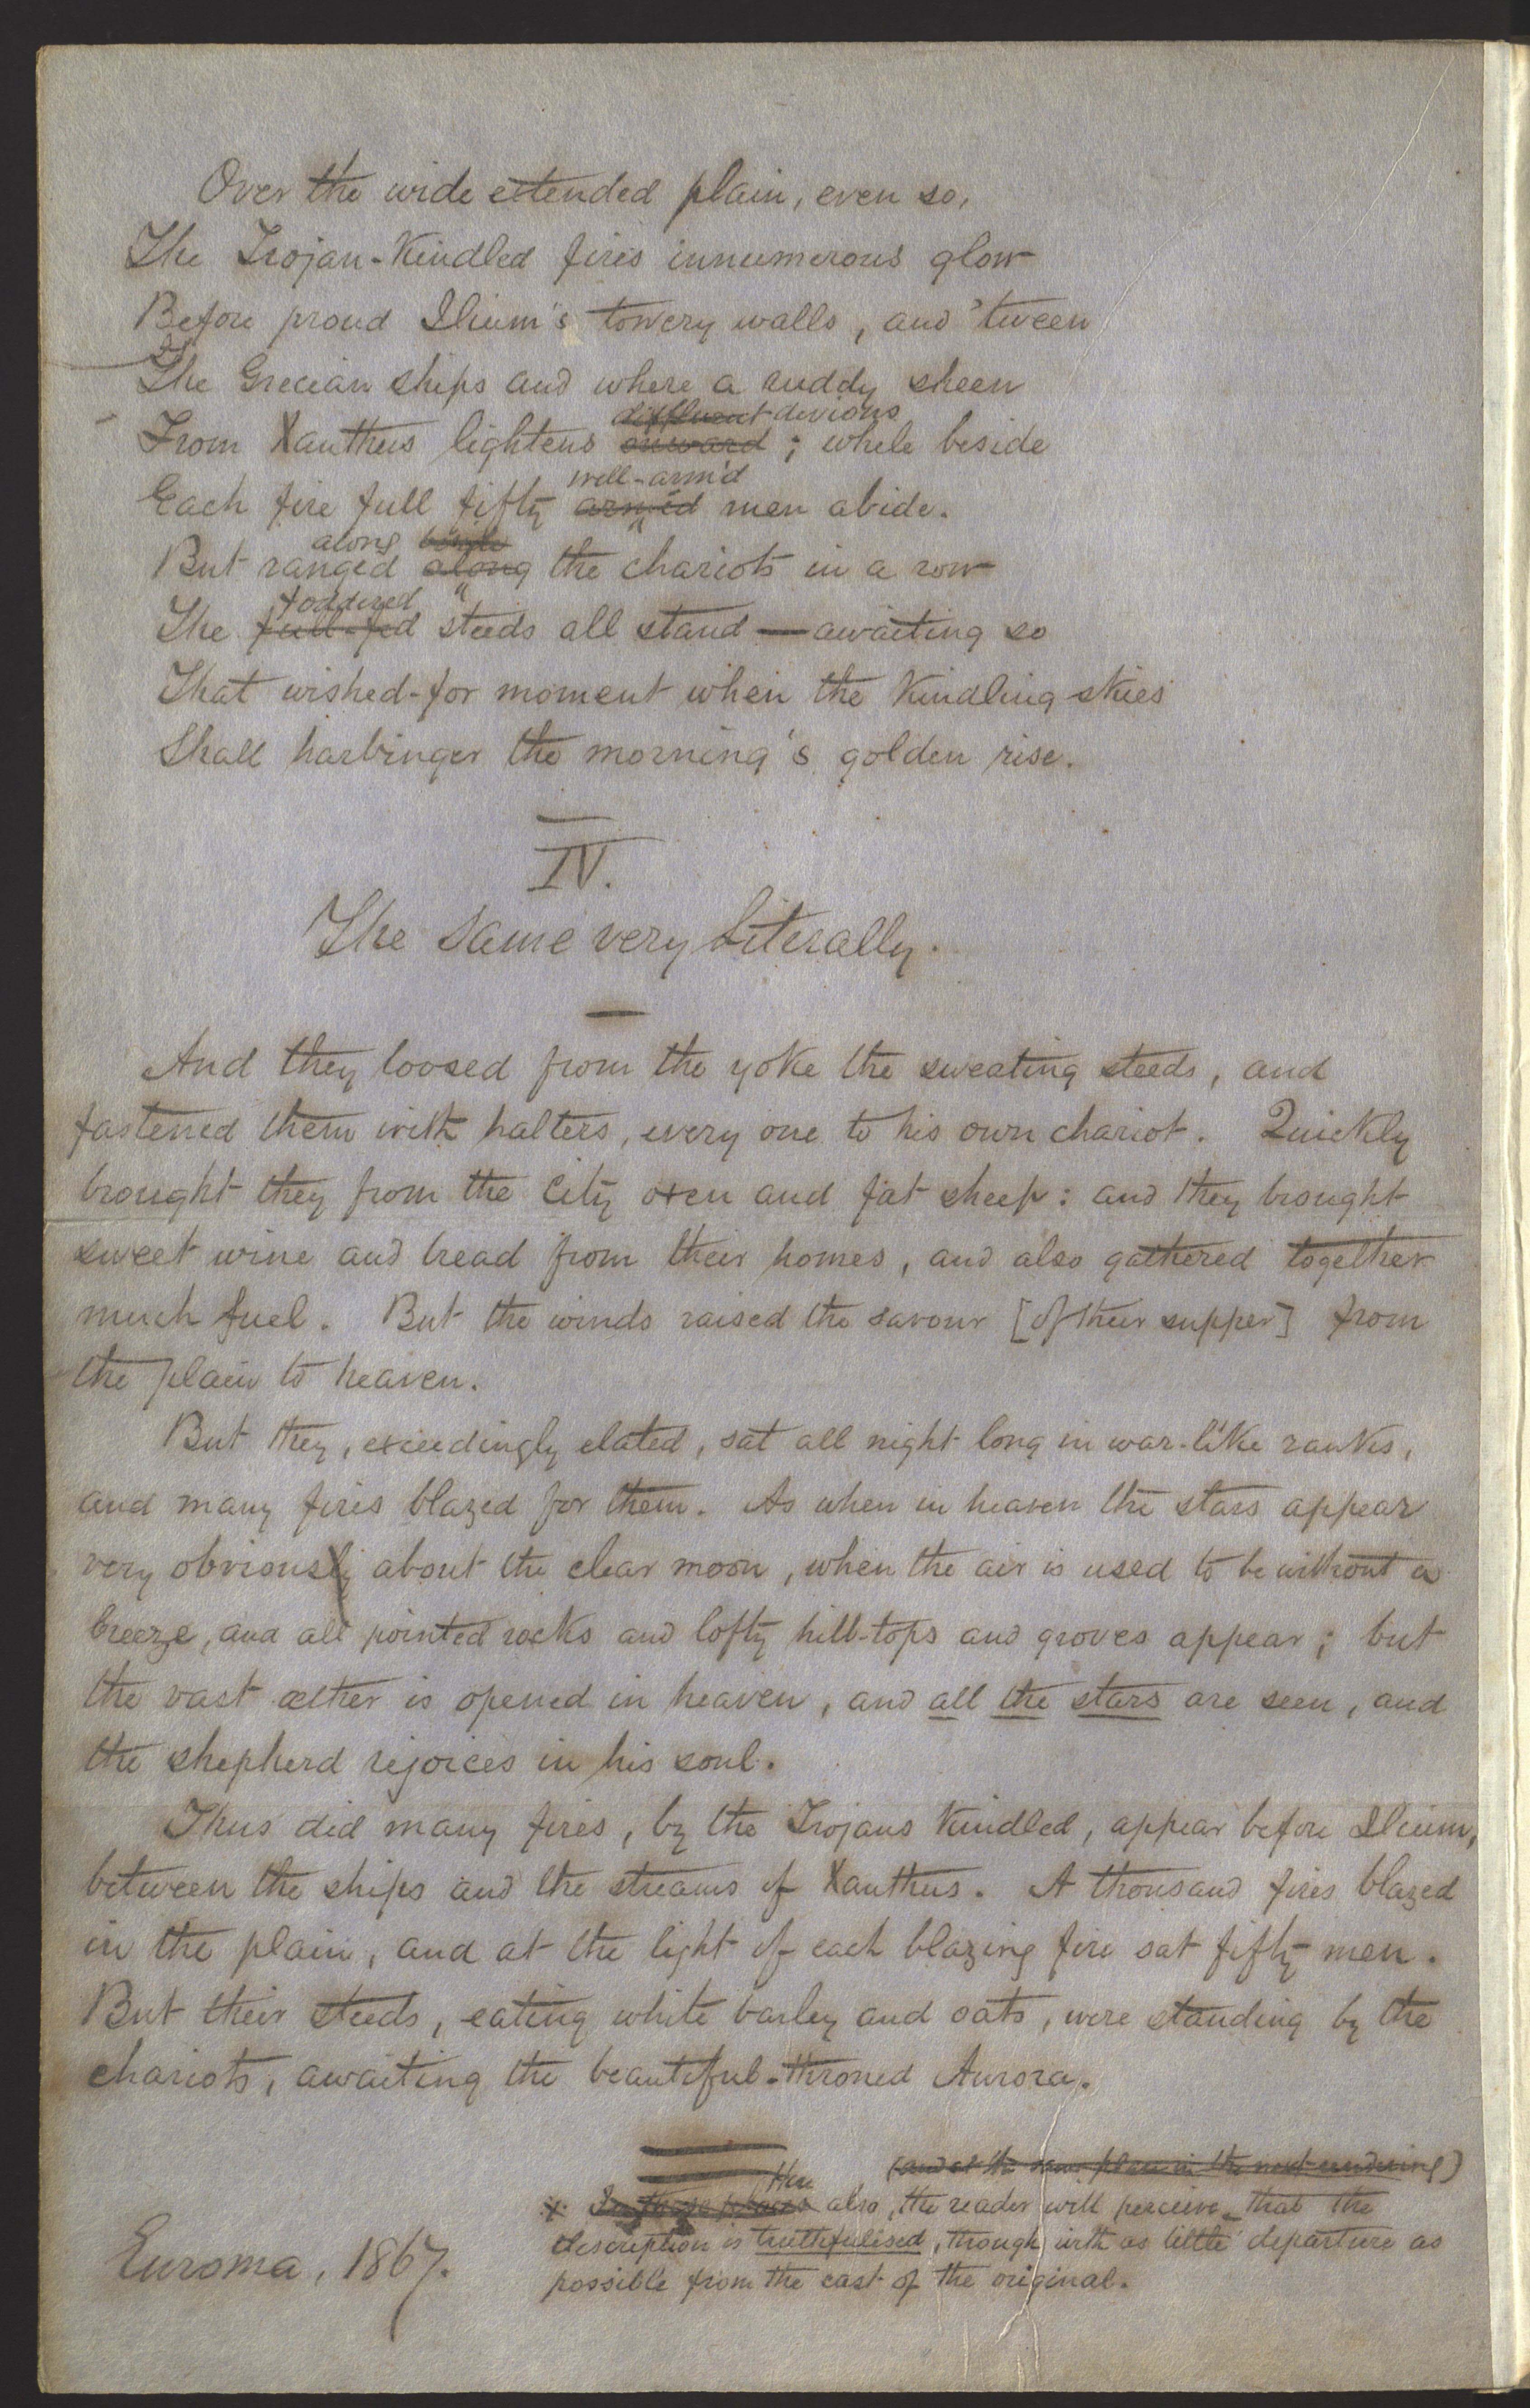 Over the wide extended plain, even so,
The Trojan-kindled fires innumerous glow
Before proud Ilium's towery walls, and 'tween
The Grecian ships and where a ruddy sheen
diffluent devious
From Xanthus lightens onward; while beside
well-arm'd
Each fire full fifty armèd men abide.
along
But ranged along the chariots in a row
foddered
The full-fed steeds all stand — awaiting so
That wished-for moment when the kindling skies
Shall harbinger the morning's golden rise.
IV.
The Same very Literally.
And they loosed from the yoke the sweating steeds, and
fastened them with halters, every one to his own chariot. Quickly
brought they from the city oxen and fat sheep: and they brought
sweet wine and bread from their homes, and also gathered together
much fuel. But the winds raised the savour [of their supper] from
the plain to heaven.
But they, exceedingly elated, sat all night long in war-like ranks,
and many fires blazed for them. As when in heaven the stars appear
very obviously about the clear moon, when the air is used to be without a
breeze, and all pointed rocks and lofty hill-tops and groves appear; but
the vast æther is opened in heaven, and all the stars are seen, and
the shepherd rejoices in his soul.
Thus did many fires, by the Trojans kindled, appear before Ilium,
between the ships and the streams of Xanthus. A thousand fires blazed
in the plain, and at the light of each blazing fire sat fifty men.
But their steeds, eating white barley and oats, were standing by the
chariots, awaiting the beautiful-throned Aurora.
(and at the same place in the next rendering)
Here
x In these places also, the reader will perceive that the
description is truthfulised, though with as little departure as
possible from the cast of the original.
Euroma, 1867.